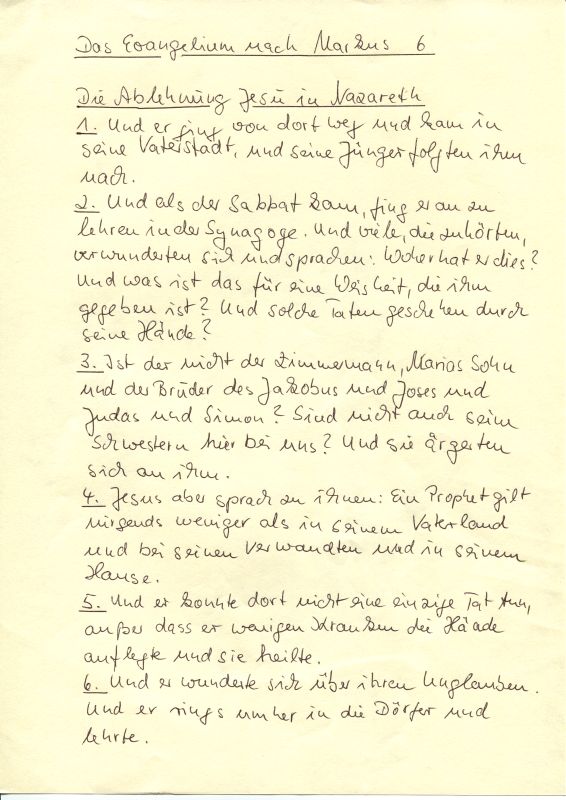 Das Evangelium nach Markus 6
Die Ablehnung Jesu in Nazareth
1. Und er ging von dort weg und kam in
seine Vaterstadt, und seine Jünger folgten ihm
nach.
2. Und als der Sabbat kam, fing er an zu
lehren in der Synagoge. Und viele, die zuhörten,
verwunderten sich und sprachen: Woher hat er dies?
Und was ist das für eine Weisheit, die ihm
gegeben ist? Und solche Taten geschehen durch
seine Hände?
3. Ist der nicht der Zimmermann, Marias Sohn
und der Brüder des Jakobus und Joses und
Judas und Simon? Sind nicht auch seine
Schwestern hier bei uns? Und sie ärgerten
sich an ihm.
4. Jesus aber sprach zu ihnen: Ein Prophet gilt
nirgends weniger als in seinem Vaterland
und bei seinen Verwandten und in seinem
Hause.
5. Und er konnte dort nicht eine einzige Tat tun,
außer dass er wenigen Kranken die Hände
auflegte und sie heilte.
6. Und er wunderte sich über ihren Unglauben.
Und er rings umher in die Dörfer und
lehrte.